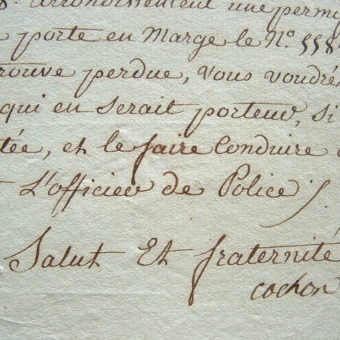 arrondissement une permi
porte en Marge le N.º 558
trouve perdue, vous voudré
qui en serait porteur, si
tée, et le faire Conduire
L'officier de Police /.
Salut Et fraternité
cochon